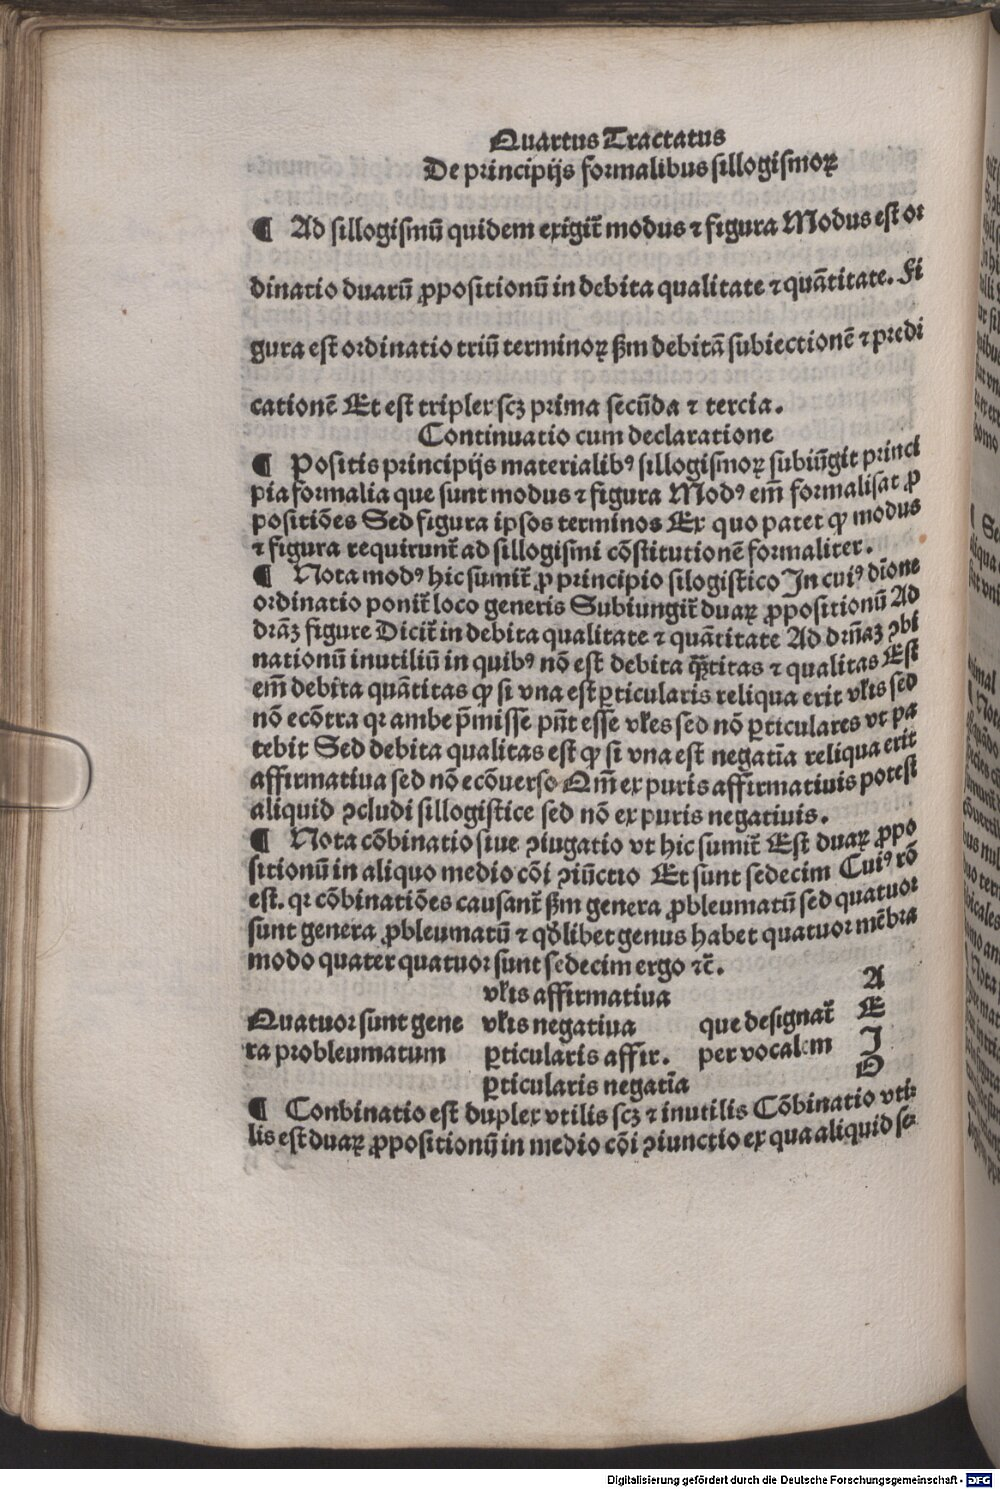 Quartus Tractatus
De principijs formalibus sillogismoꝝ
¶ Ad sillogismū quidem exigit̄ modus ⁊ figura Modus est or
dinatio duarū ꝓpositionū in debita qualitate ⁊ quātitate. Fi
gura est ordinatio triū terminoꝝ ẜm debitā subiectionē ⁊ predi
cationē Et est triplex scꝫ prima secūda ⁊ tercia.
Continuatio cum declaratione
¶ Positis principijs materialibꝰ sillogismoꝝ subiūgit princi
pia formalia que sunt modus ⁊ figura Modꝰ em̄ formalisat ꝓ
positiōes Sed figura ipsos terminos Ex quo patet ꝙ modus
⁊ figura requirunt̄ ad sillogismi cōstitutionē formaliter.
¶ Nota modꝰ hic sumit̄ ꝓ principio silogistico In cuiꝰ dīone
ordinatio ponit̄ loco generis Subiungit̄ duaꝝ ꝓpositionū Ad
drāꝫ figure Dicit̄ in debita qualitate ⁊ quātitate Ad drn̄aꝫ ꝯbi
nationū inutiliū in quibꝰ nō est debita quātitas ⁊ qualitas Est
em̄ debita quātitas ꝙ si vna est ꝑticularis reliqua erit vl̄is sed
nō ecōtra qꝛ ambe p̄misse pn̄t esse vl̄es sed nō ꝑticulares vt pa
tebit Sed debita qualitas est ꝙ si vna est negatīa reliqua erit
affirmatiua sed nō ecōuerso Qm̄ ex puris affirmatiuis potest
aliquid ꝯcludi sillogistice sed nō ex puris negatiuis.
¶ Nota cōbinatio siue ꝯiugatio vt hic sumit̄ Est duaꝝ ꝓpo
sitionū in aliquo medio cōi ꝯiūctio Et sunt sedecim Cuiꝰ rō
est. qꝛ cōbinatiōes causant̄ ẜm genera ꝓbleumatū sed quatuor
sunt genera ꝓbleumatū ⁊ qd̄libet genus habet quatuor mēbra
modo quater quatuor sunt sedecim ergo ⁊c̄.
vl̄is affirmatiua A
Quatuor sunt gene vl̄is negatiua que designat̄ E
ra probleumatum ꝑticularis affir. per vocalem I
ꝑticularis negatīa O
¶ Conbinatio est duplex vtilis scꝫ ⁊ inutilis Cōbinatio vti
lis est duaꝝ ꝓpositionū in medio cōi ꝯiunctio ex qua aliquid se
Digitalisierung gefördert durch die Deutsche Forschungsgemeinschaft - DFG